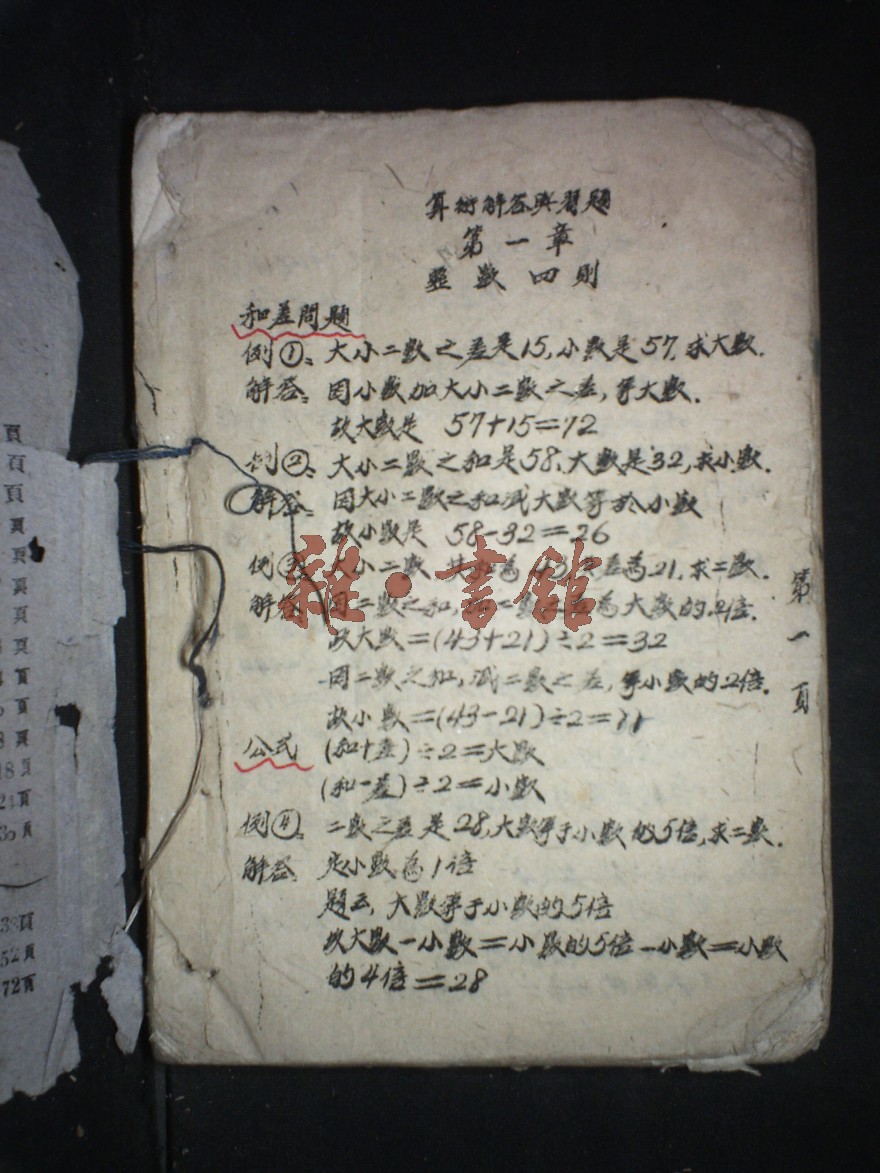 算術解答與習題
第一章
整數四則
和差問題
例①：大小二數之差是15,小數是57,求大數.
解答：因小數加大小二數之差,等大數.
故大數是 57+15=72
例②：大小二數之和是58,大數是32,求小數.
解答：因大小二數之和减大數等於小數
故小數是 58-32=26
例③：大小二數 共和為43 差為21,求二數.
解答 因二數之和, 二數 為大數的2倍.
故大數=(43+21)÷2=32
因二數之和,减二數之差,等小數的2倍.
故小數=(43-21)÷2=11
公式 (和+差)÷2=大數
(和-差)÷2=小數
例④：二數之差是28,大數等于小數的5倍,求二數.
解答 定小數為1倍
題云,大數等于小數的5倍
故大數-小數=小數的5倍-小數=小數
的4倍=28
第一頁
雜·書館
頁
頁
頁
頁
頁
頁
頁
頁
頁
頁
頁
18頁
頁
30頁
頁
52頁
72頁